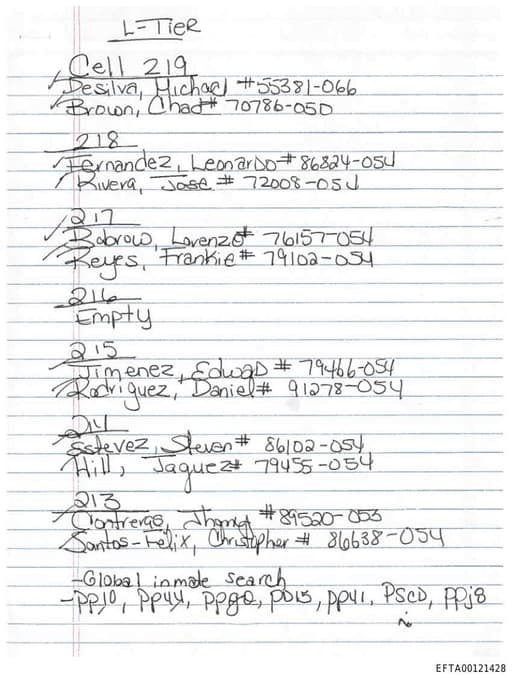 L-Tier
Cell 219
Desilva, Michael #55381-066
Brown, Chad# 70786-050
218
Fernandez, Leonardo# 86824-054
Rivera, Jose # 72008-054
217
Bobrow, Lorenzo# 76157-054
Reyes, Frankie# 79102-054
216
Empty
215
Jimenez, Edwad # 79466-054
Rodriguez, Daniel# 91278-054
214
Estevez, Steven# 86102-054
Hill, Jaquez# 79455-054
213
Contreras, #89520-053
Santos-Felix, Christopher # 86638-054
-Global inmate search
-pp10, pp44, ppg0, pp41, PSCD, ppj8
EFTA00121428